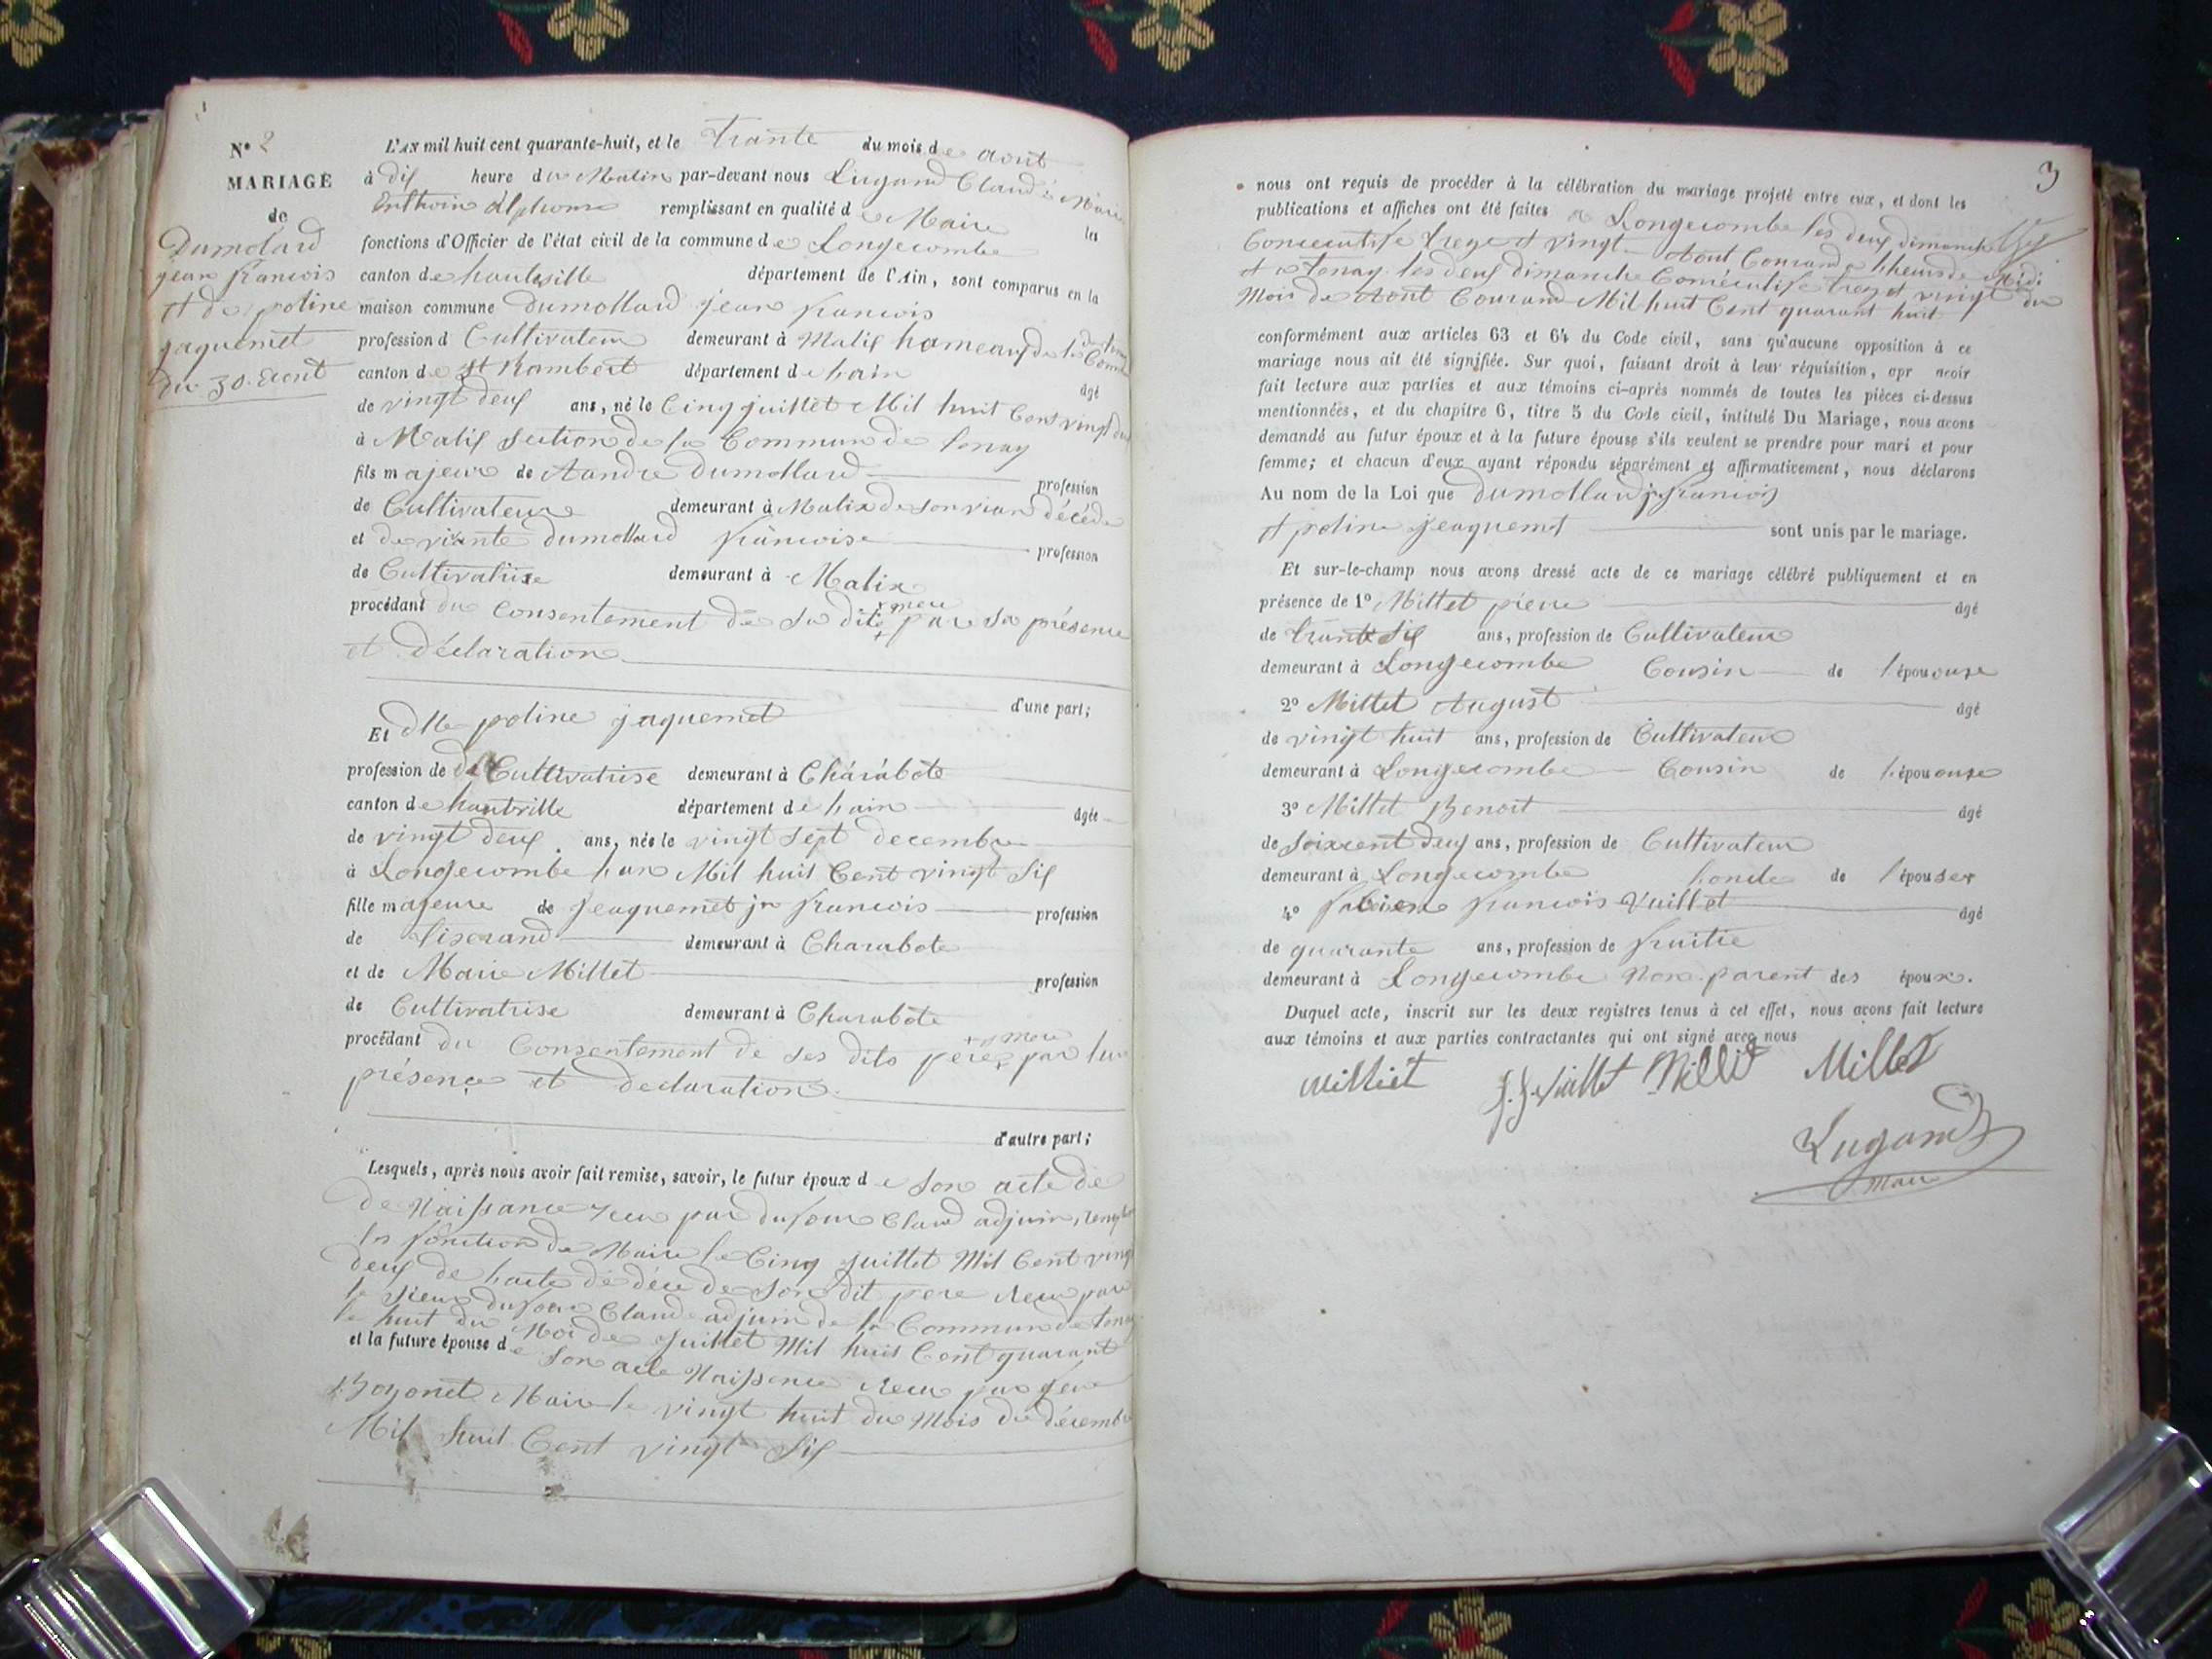 N° 2
MARIAGE
de
Dumolard
jean francois
et de poline
jaquemet
du 30 Aout
L'AN mil huit cent quarante-huit, et le trante du mois de Aout
à dix heure du Matin par-devant nous Lugand Claude Marie
Anthoin Alphonse remplissant en qualité de Maire les
fonctions d'Officier de l'état civil de la commune de Longecombe
canton de hauteville département de l'Ain, sont comparus en la
maison commune Dumollard jean francois
profession d Cultivateur demeurant à Malix hameau de la
canton de St Rambert département de hain âgé
de vingt deux ans, né le Cinq juillet Mil huit Cent vingt deux
à Malix Section de la Commune de tenay
fils majeur de Aandre Dumollard profession
de Cultivateur demeurant à Malix de son vivan décédé
et de vivante dumollard francoise profession
de Cultivatrise demeurant à Malix
procédant du Consentement de Sa dite mere par Sa présence
et déclaration
d'une part;
Et dlle poline jaquemet
profession de Cultivatrise demeurant à Charabote
canton de hauteville département de hain âgée
de vingt deux ans, née le vingt Sept decembre
à Longecombe han Mil huit Cent vingt Six
fille majeure de jeaquemet jn francois profession
de tiserand demeurant à Charabote
et de Marie Millet profession
de Cultivatrise demeurant à Charabote
procédant du Consentement de ses dits pere et mere par leur
présence et declaration
d'autre part;
Lesquels, après nous avoir fait remise, savoir, le futur époux d e Son acte de
de Naissance reçu par dufour Claud adjuin,
la fonction de Maire le Cinq juillet Mil Cent vingt
deux de l'acte de déce de Son dit pere Reçu par
le Sieur dufour Claude adjuin de la Commun de tenay
le huit du Moi de juillet Mil huit Cent quarant
et la future épouse de Son acte Naissence Reçu par
Boyonet Maire le vingt huit du Mois de décembre
Mil huit Cent vingt Six
3
nous ont requis de procéder à la célébration du mariage projeté entre eux, et dont les
publications et affiches ont été faites a Longecombe les deux dimanche
Consecutife treze et vingt Aout Courand a lheur de Midi
et a tenay les deux dimanche Consécutife treze et vingt du
Mois de Aout Courand Mil huit Cent quarant huit
conformément aux articles 63 et 64 du Code civil, sans qu'aucune opposition à ce
mariage nous ait été signifiée. Sur quoi, faisant droit à leur réquisition, apr avoir
fait lecture aux parties et aux témoins ci-après nommés de toutes les pièces ci-dessus
mentionnées, et du chapitre 6, titre 5 du Code civil, intitulé Du Mariage, nous avons
demandé au futur époux et à la future épouse s'ils veulent se prendre pour mari et pour
femme; et chacun d'eux ayant répondu séparément et affirmativement, nous déclarons
Au nom de la Loi que Dumollard j. francois
et poline jeaquemet sont unis par le mariage.
Et sur-le-champ nous avons dressé acte de ce mariage célébré publiquement et en
présence de 1° Millet piere âgé
de trante Six ans, profession de Cultivateur
demeurant à Longecombe Cousin de l'épououse
2° Millet August âgé
de vingt huit ans, profession de Cultivateur
demeurant à Longecombe Cousin de l'épououse
3° Millet Benoit âgé
de Soixcent deux ans, profession de Cultivateur
demeurant à Longecombe loncle de l'épouser
4° fabien francois Vuillet âgé
de quarante ans, profession de fruitie
demeurant à Longecombe Non parent des époux.
Duquel acte, inscrit sur les deux registres tenus à cet effet, nous avons fait lecture
aux témoins et aux parties contractantes qui ont signé avec nous
Millet Millet
Lugand
Maire